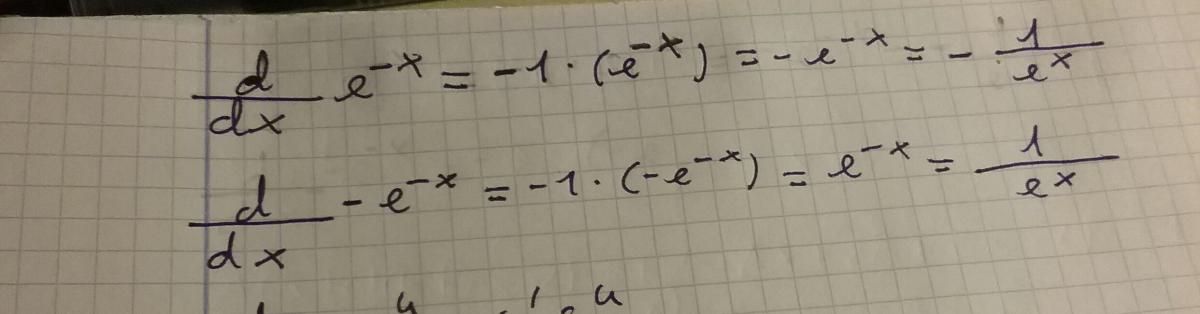 d/dx e^-x = -1 · (e^-x) = -e^-x = - 1/e^x
d/dx - e^-x = -1 · (-e^-x) = e^-x = 1/e^x